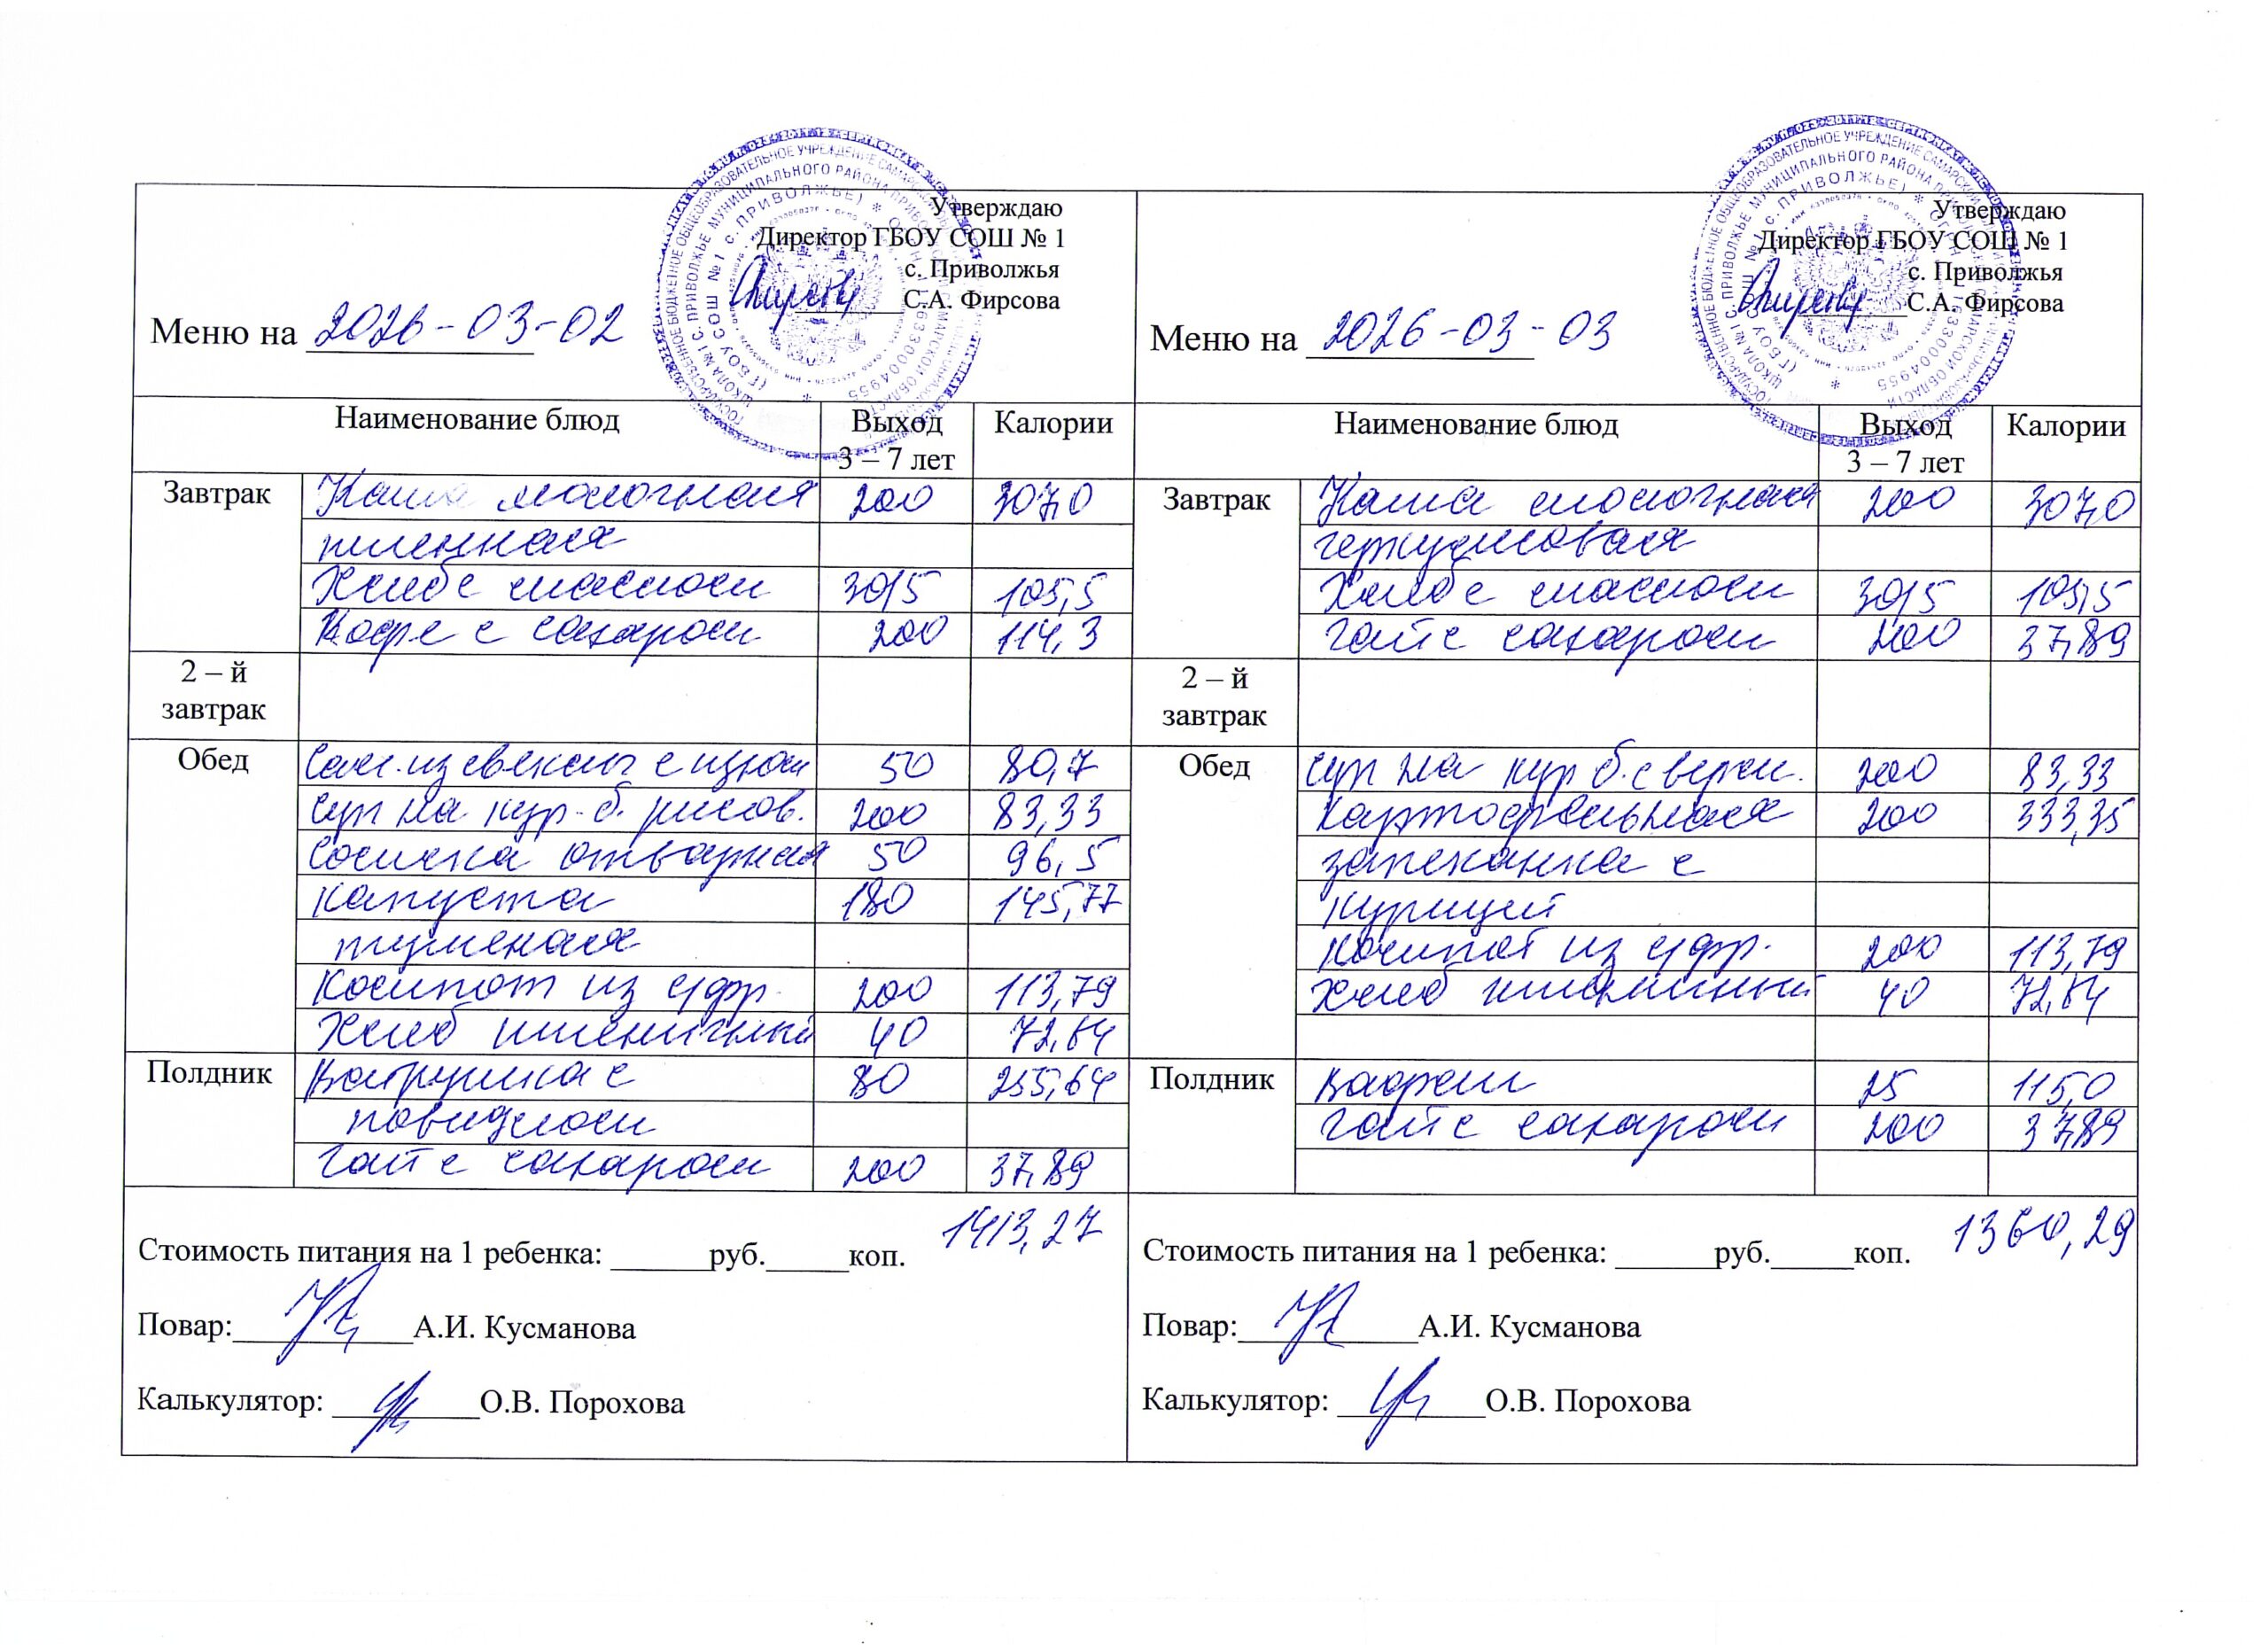 Утверждаю
Директор ГБОУ СОШ № 1
с. Приволжья
С.А. Фирсова
Меню на 2026-03-02
Наименование блюд Выход 3 – 7 лет Калории
Завтрак Каша молочная 200 307,0
пшенная
Хлеб с маслом 30/5 105,5
Кофе с сахаром 200 114,3
2 – й завтрак
Обед Салат из свеклы с изюм 50 80,7
Суп на кур. б. рисов. 200 83,33
Сосиска отварная 50 96,5
капуста 180 145,77
тушеная
Компот из с/фр. 200 113,79
Хлеб пшеничный 40 72,64
Полдник Ватрушка с 80 255,64
повидлом
Чай с сахаром 200 37,89
1413,27
Стоимость питания на 1 ребенка: ______руб._____коп.
Повар:___________А.И. Кусманова
Калькулятор: _________О.В. Порохова
Утверждаю
Директор ГБОУ СОШ № 1
с. Приволжья
С.А. Фирсова
Меню на 2026-03-03
Наименование блюд Выход 3 – 7 лет Калории
Завтрак Каша молочная 200 307,0
геркулесовая
Хлеб с маслом 30/5 105,5
Чай с сахаром 200 37,89
2 – й завтрак
Обед Суп на кур б. с верм. 200 83,33
Картофельная 200 333,35
запеканка с
курицей
Компот из с/фр. 200 113,79
Хлеб пшеничный 40 72,64
Полдник Вафли 25 115,0
Чай с сахаром 200 37,89
1360,29
Стоимость питания на 1 ребенка: ______руб._____коп.
Повар:___________А.И. Кусманова
Калькулятор: _________О.В. Порохова